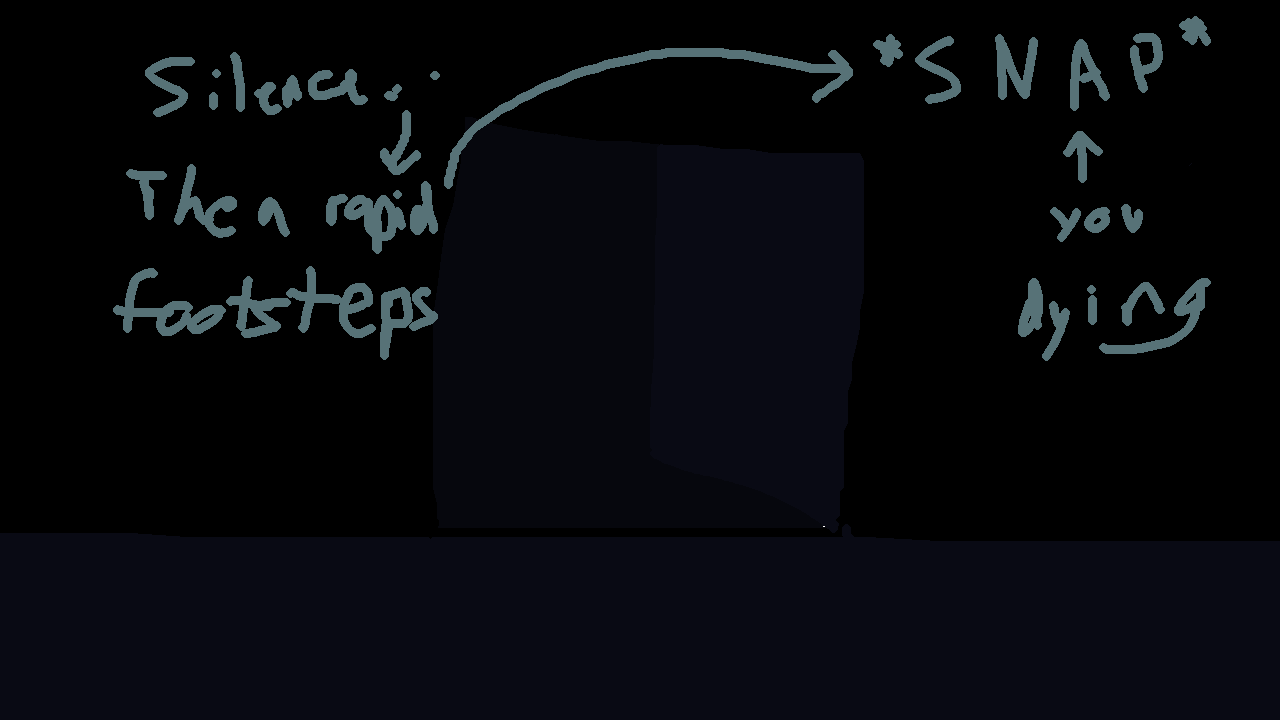 Silence..
Then rapid
footsteps
*SNAP*
you
dying